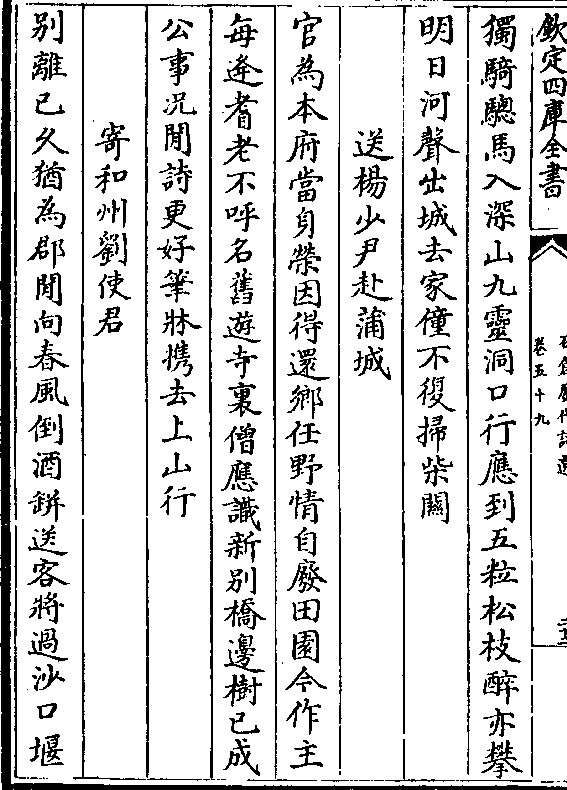 欽定四庫全書
卷五十九
獨騎驄馬入深山九靈洞口行應到五粒松枝醉亦攀
明日河聲出城去家僮不復掃柴關
送楊少尹赴蒲城
官為本府當身榮因得還鄉任野情自廢田園今作主
每逢耆老不呼名舊遊寺裏僧應識新別橋邊樹已成
公事況閒詩更好筆牀携去上山行
寄和州劉使君
別離已久猶為郡閒向春風倒酒缾送客將過沙口堰